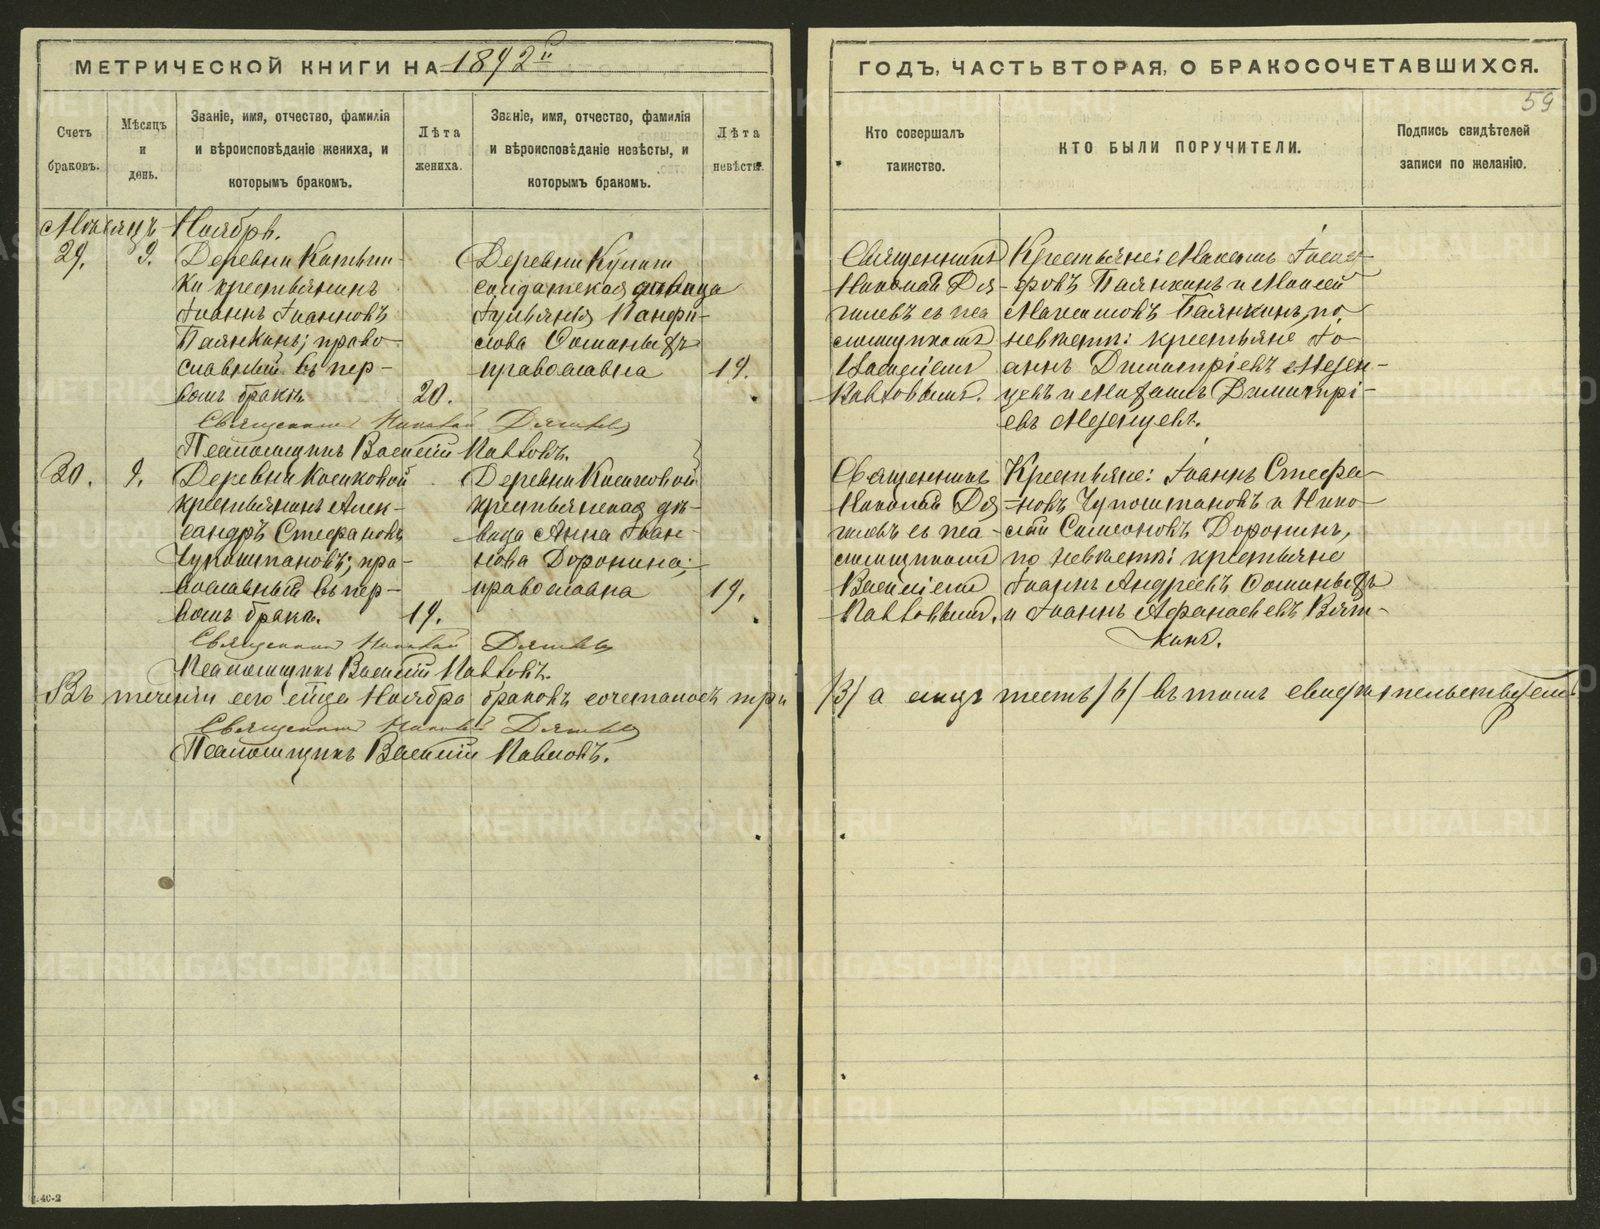 МЕТРИЧЕСКОЙ КНИГИ НА 1892й
ГОДЪ, ЧАСТЬ ВТОРАЯ, О БРАКОСОЧЕТАВШИХСЯ.
59
Счетъ браковъ.
Мѣсяцъ и день.
Званіе, имя, отчество, фамилія
и вѣроисповѣданіе жениха, и
которымъ бракомъ.
Лѣта
жениха.
Званіе, имя, отчество, фамилія
и вѣроисповѣданіе невѣсты, и
которымъ бракомъ.
Лѣта
невѣсты.
Кто совершалъ
таинство.
КТО БЫЛИ ПОРУЧИТЕЛИ.
Подпись свидѣтелей
записи по желанію.
Мѣсяцъ Ноябрь.
29. 9.
Деревни
ки крестьянинъ
Іоаннъ Іоанновъ
Паянкинъ; право-
славный въ пер-
вомъ бракѣ
20.
Деревни
солдатская дѣвица
Панфи-
лова
православна
19.
Священникъ
Николай Дя-
гилевъ съ пса
ломщикомъ
Василіемъ
Павловымъ.
Крестьяне: Максимъ
Паянкинъ и Моисей
Максимовъ Паянкинъ, по
невѣстѣ: крестьяне Іо-
аннъ Димитріевъ Мезен-
цевъ и Димитрі-
евъ Мезенцевъ.
Священникъ Николай Дягилевъ
Псаломщикъ Василій Павловъ.
20. 9.
Деревни
крестьянинъ Алек-
сандръ Стефановъ
пра-
вославный въ пер-
вомъ бракѣ.
19.
Деревни
крестьянская дѣ-
вица Анна Іоан-
нова Доронина;
православна
19.
Священникъ
Николай Дя
гилевъ съ пса-
ломщикомъ
Василіемъ
Павловымъ.
Крестьяне: Іоаннъ Стефа-
новъ и Нико-
лай Симеоновъ Доронинъ,
по невѣстѣ: крестьяне
Іоаннъ Андреевъ
и Іоаннъ Афанасьевъ Вят-
кинъ.
Священникъ Николай Дягилевъ
Псаломщикъ Василій Павловъ.
Въ теченіи сего м-ца Ноября браковъ сочеталось три /3/ а лицъ шесть /6/ въ томъ свидѣтельствуемъ
Священникъ Николай Дягилевъ
Псаломщикъ Василій Павловъ.
METRIKI.GASO-URAL.RU